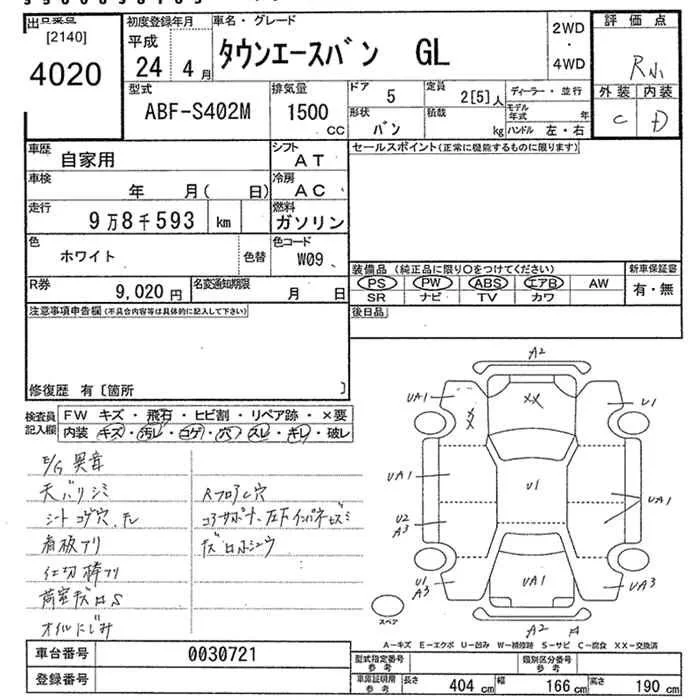 出品票 初度登録年月 車名・グレード 評価点
[2140] 平成
4020 24 4月 タウンエースバン GL 2WD・4WD R小
型式 排気量 ドア 5 定員 2[5]人 ディーラー・並行 外装 内装
ABF-S402M 1500 CC 形状 バン 積載 kg モデル年式 年 ハンドル 左・右 C D
車歴 自家用 シフト AT セールスポイント(正常に機能するものに限ります)
車検 年 月( 日) 冷房 AC
走行 9万8千593 km 燃料 ガソリン
色 ホワイト 色替 色コード W09
装備品(純正品に限り○をつけてください) 新車保証書
PS PW ABS エアB AW 有・無
SR ナビ TV カワ
R券 9,020円 名変通知期限 月 日
注意事項申告欄(不具合内容等は具体的に記入して下さい) 後日品
修復歴 有〔箇所 〕
検査員記入欄 FW キズ・飛石・ヒビ割・リペア跡・×要
内装 キズ・汚レ・コゲ・穴・スレ・キレ・破レ
E/G 異音
天バリシミ RフロアC穴
シートコゲ穴、スレ
看板アリ
仕切棒アリ
荷室キズロS
オイルにじみ
A2
UA1 XX U1
XX
UA1 U1 UA1
U2
A3
U1
A3 UA1 UA3
A2
スペア
A-キズ E-エクボ U-凹み W-補修跡 S-サビ C-腐食 XX-交換済
車台番号 0030721 型式指定番号 参考 類別区分番号 参考
登録番号 車庫証明用 参考 長さ 404cm 幅 166cm 高さ 190cm